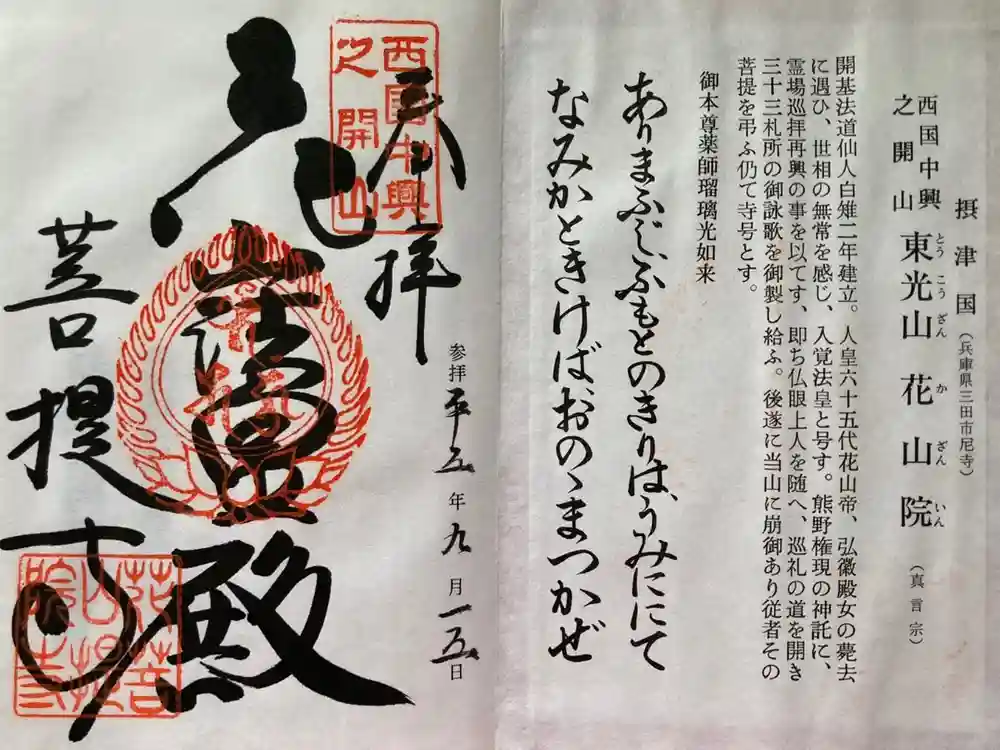 摂津国（兵庫県三田市尼寺）
西国中興
之開山
東光山花山院（真言宗）
とうこうざんかざんいん
開基法道仙人白雉二年建立。人皇六十五代花山帝、弘徽殿女の薨去
に遇ひ、世相の無常を感じ、入覚法皇と号す。熊野権現の神託に、
霊場巡拝再興の事を以てす、即ち仏眼上人を随へ、巡礼の道を開き
三十三札所の御詠歌を御製し給ふ。後遂に当山に崩御あり従者その
菩提を弔ふ仍て寺号とす。
御本尊薬師瑠璃光如来
ありまふじふもとのきりは、うみににて
なみかときけば、おのゝまつかぜ
西国中興
之開山
奉拝
参拝平五年九月一五日
殿
菩提寺
花山院
菩提寺